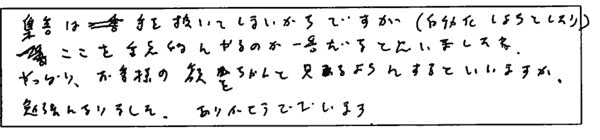 集客は手を抜いてしまいがちですが（自動化しようとしたり）
ここを手見的んやるのが一番だろと思いましたな。
やっぱり、お客様の顔をちゃんと見れるようにするといいますか。
勉強になりました。ありがとうございます